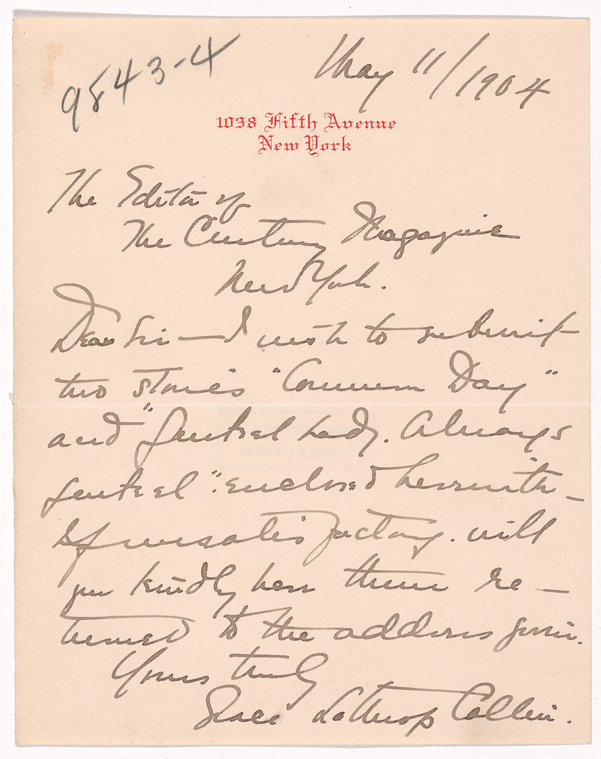 9843-4
May 11/1904
1038 Fifth Avenue
New York
The Editor of
The Century Magazine
New York.
Dear Sir — I wish to submit
two stories "Common Day"
and "Genteel Lady. Always
Genteel". enclosed herewith —
If unsatisfactory. will
you kindly have them re —
turned to the address given.
Yours truly
Grace Lathrop Collin.